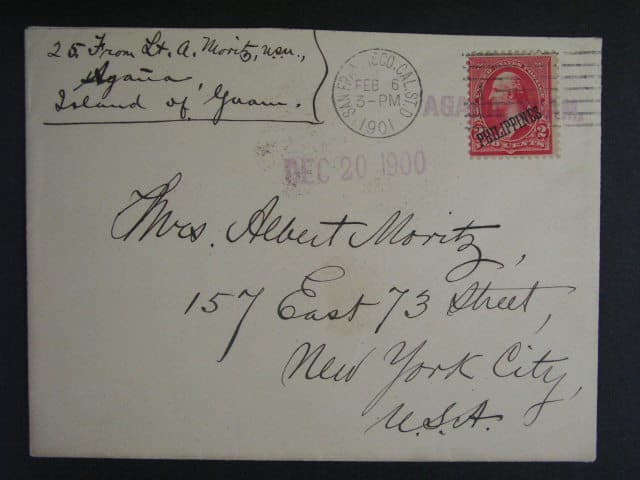 25 From Lt. A. Moritz, U.S.N.,
Agaña,
Island of Guam.
SAN FRANCISCO, CAL. ST'D
FEB 6
3-PM
1901
PHILIPPINES
2
CENTS
AGANA, GUAM.
DEC 20 1900
Mrs. Albert Moritz,
157 East 73 Street,
New York City,
U.S.A.